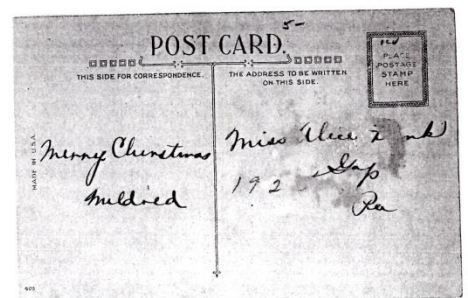 5-
POST CARD.
THIS SIDE FOR CORRESPONDENCE.
THE ADDRESS TO BE WRITTEN
ON THIS SIDE.
PLACE
POSTAGE
STAMP
HERE
MADE IN U.S.A.
Merry Christmas
Mildred
Miss Alice
192
Gap
Pa